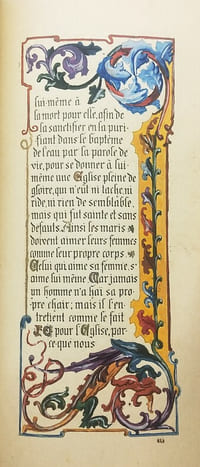 lui-même à
la mort pour elle, afin de
la sanctifier en la puri-
fiant dans le baptême
de l'eau par la parole de
vie, pour se donner à lui-
même une Eglise pleine de
gloire, qui n'eut ni tache, ni
ride, ni rien de semblable,
mais qui fut sainte et sans
defauts. Ainsi les maris
doivent aimer leurs femmes
comme leur propre corps.
Celui qui aime sa femme, s'
aime lui même. Car jamais
un homme n'a haï sa pro-
pre chair; mais il l'en-
tretient comme le fait
J-C pour l'Eglise, par-
ce que nous